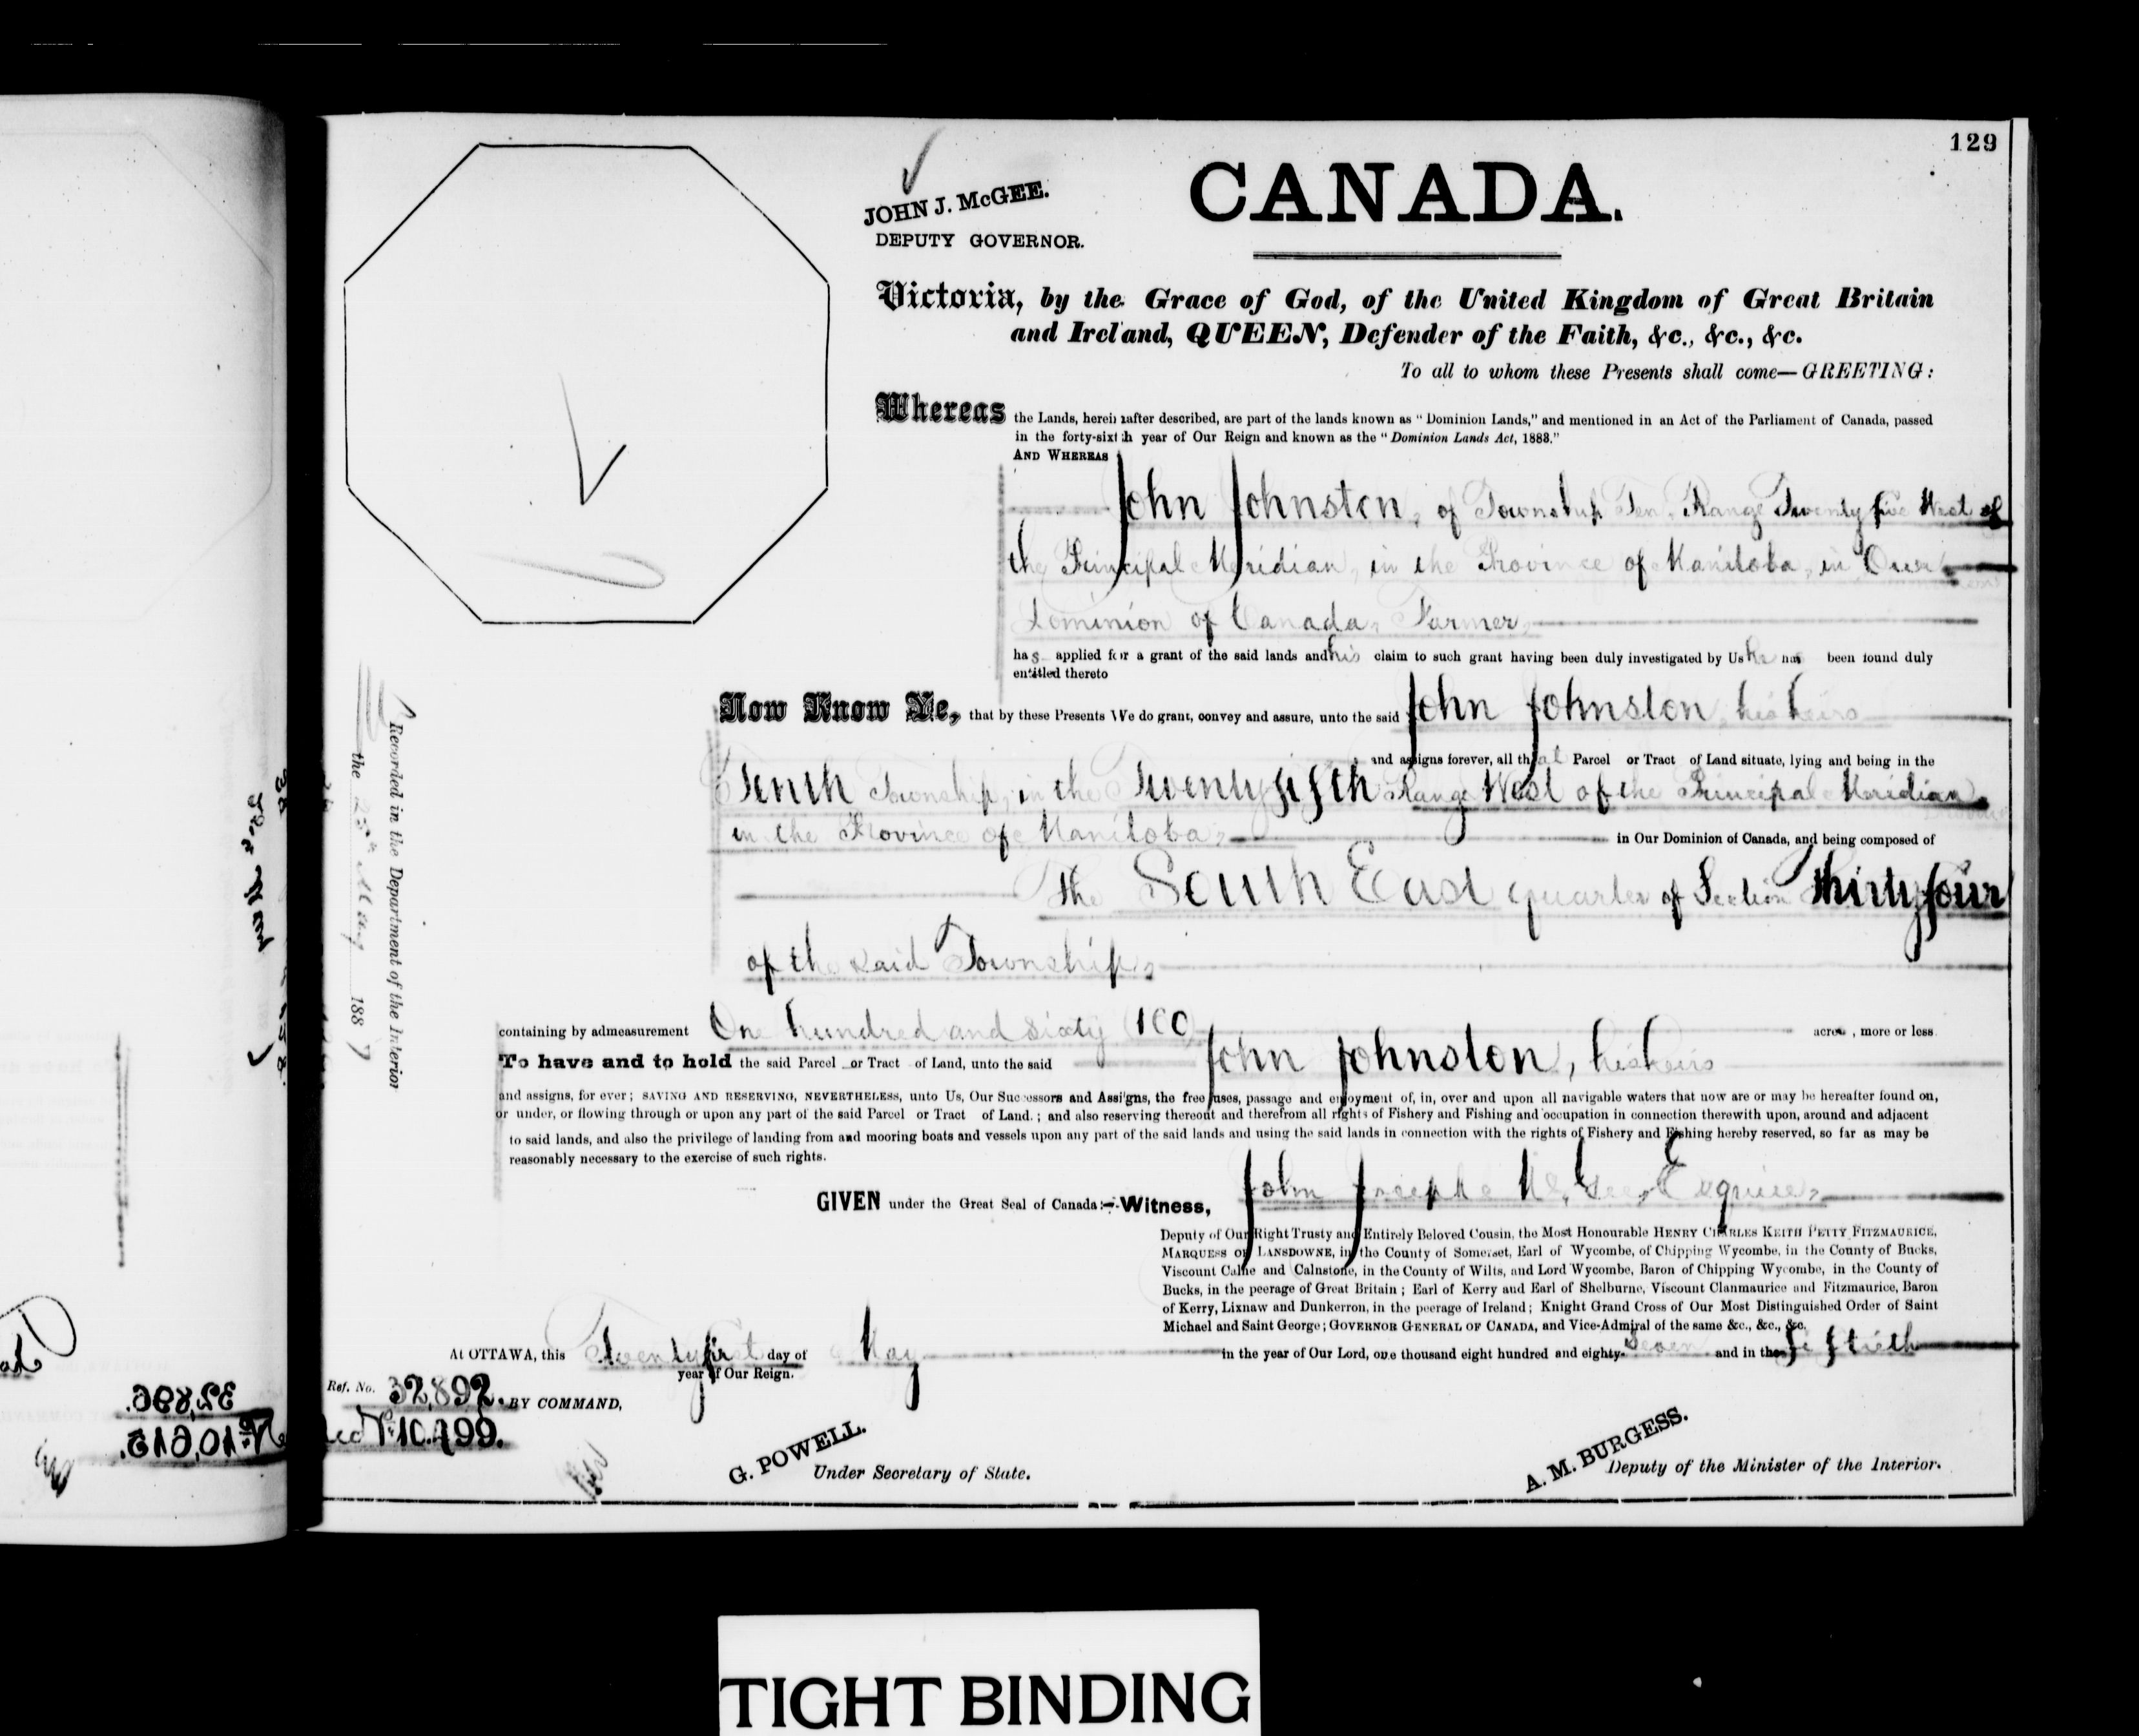 129
JOHN J. McGEE.
DEPUTY GOVERNOR.
CANADA.
Victoria, by the Grace of God, of the United Kingdom of Great Britain
and Ireland, QUEEN, Defender of the Faith, &c., &c., &c.
To all to whom these Presents shall come—GREETING:
Whereas the Lands, hereinafter described, are part of the lands known as "Dominion Lands," and mentioned in an Act of the Parliament of Canada, passed
in the forty-sixth year of Our Reign and known as the "Dominion Lands Act, 1883."
AND WHEREAS
John Johnston, of Township Ten, Range Twenty five West of
the Principal Meridian, in the Province of Manitoba, in Our
Dominion of Canada, Farmer,
has applied for a grant of the said lands and his claim to such grant having been duly investigated by Us he has been found duly
entitled thereto
Now Know Ye, that by these Presents We do grant, convey and assure, unto the said John Johnston, his heirs
and assigns forever, all that Parcel or Tract of Land situate, lying and being in the
Tenth Township, in the Twenty fifth Range West of the Principal Meridian,
in the Province of Manitoba, in Our Dominion of Canada, and being composed of
The South East quarter of Section Thirty four
of the said Township,
containing by admeasurement One hundred and Sixty (160) acres, more or less
To have and to hold the said Parcel or Tract of Land, unto the said John Johnston, his heirs
and assigns, for ever; SAVING AND RESERVING, NEVERTHELESS, unto Us, Our Successors and Assigns, the free uses, passage and enjoyment of, in, over and upon all navigable waters that now are or may be hereafter found on,
or under, or flowing through or upon any part of the said Parcel or Tract of Land.; and also reserving thereout and therefrom all rights of Fishery and Fishing and occupation in connection therewith upon, around and adjacent
to said lands, and also the privilege of landing from and mooring boats and vessels upon any part of the said lands and using the said lands in connection with the rights of Fishery and Fishing hereby reserved, so far as may be
reasonably necessary to the exercise of such rights.
GIVEN under the Great Seal of Canada:—Witness, John Joseph McGee, Esquire,
Deputy of Our Right Trusty and Entirely Beloved Cousin, the Most Honourable HENRY CHARLES KEITH PETTY FITZMAURICE,
MARQUESS OF LANSDOWNE, in the County of Somerset, Earl of Wycombe, of Chipping Wycombe, in the County of Bucks,
Viscount Calne and Calnstone, in the County of Wilts, and Lord Wycombe, Baron of Chipping Wycombe, in the County of
Bucks, in the peerage of Great Britain; Earl of Kerry and Earl of Shelburne, Viscount Clanmaurice and Fitzmaurice, Baron
of Kerry, Lixnaw and Dunkerron, in the peerage of Ireland; Knight Grand Cross of Our Most Distinguished Order of Saint
Michael and Saint George; GOVERNOR GENERAL OF CANADA, and Vice-Admiral of the same &c., &c., &c.
At OTTAWA, this Twenty first day of May in the year of Our Lord, one thousand eight hundred and eighty-seven and in the fiftieth
year of Our Reign.
Ref. No. 32,892. BY COMMAND,
G. POWELL.
Under Secretary of State.
A. M. BURGESS.
Deputy of the Minister of the Interior.
Recorded in the Department of the Interior
the 25th May 1887
TIGHT BINDING